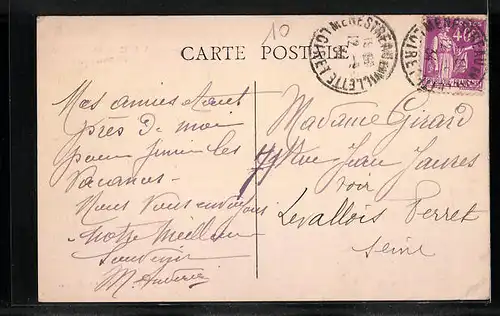 10
CARTE POSTALE
MENESTREAU-EN-VILLETTE LOIRET
40
Mes amies étant
près de moi
pour finir les
vacances -
Nous vous envoyons
notre meilleur
souvenir
Madame Girard
Rue Jean Jaures
Levallois Perret
Seine